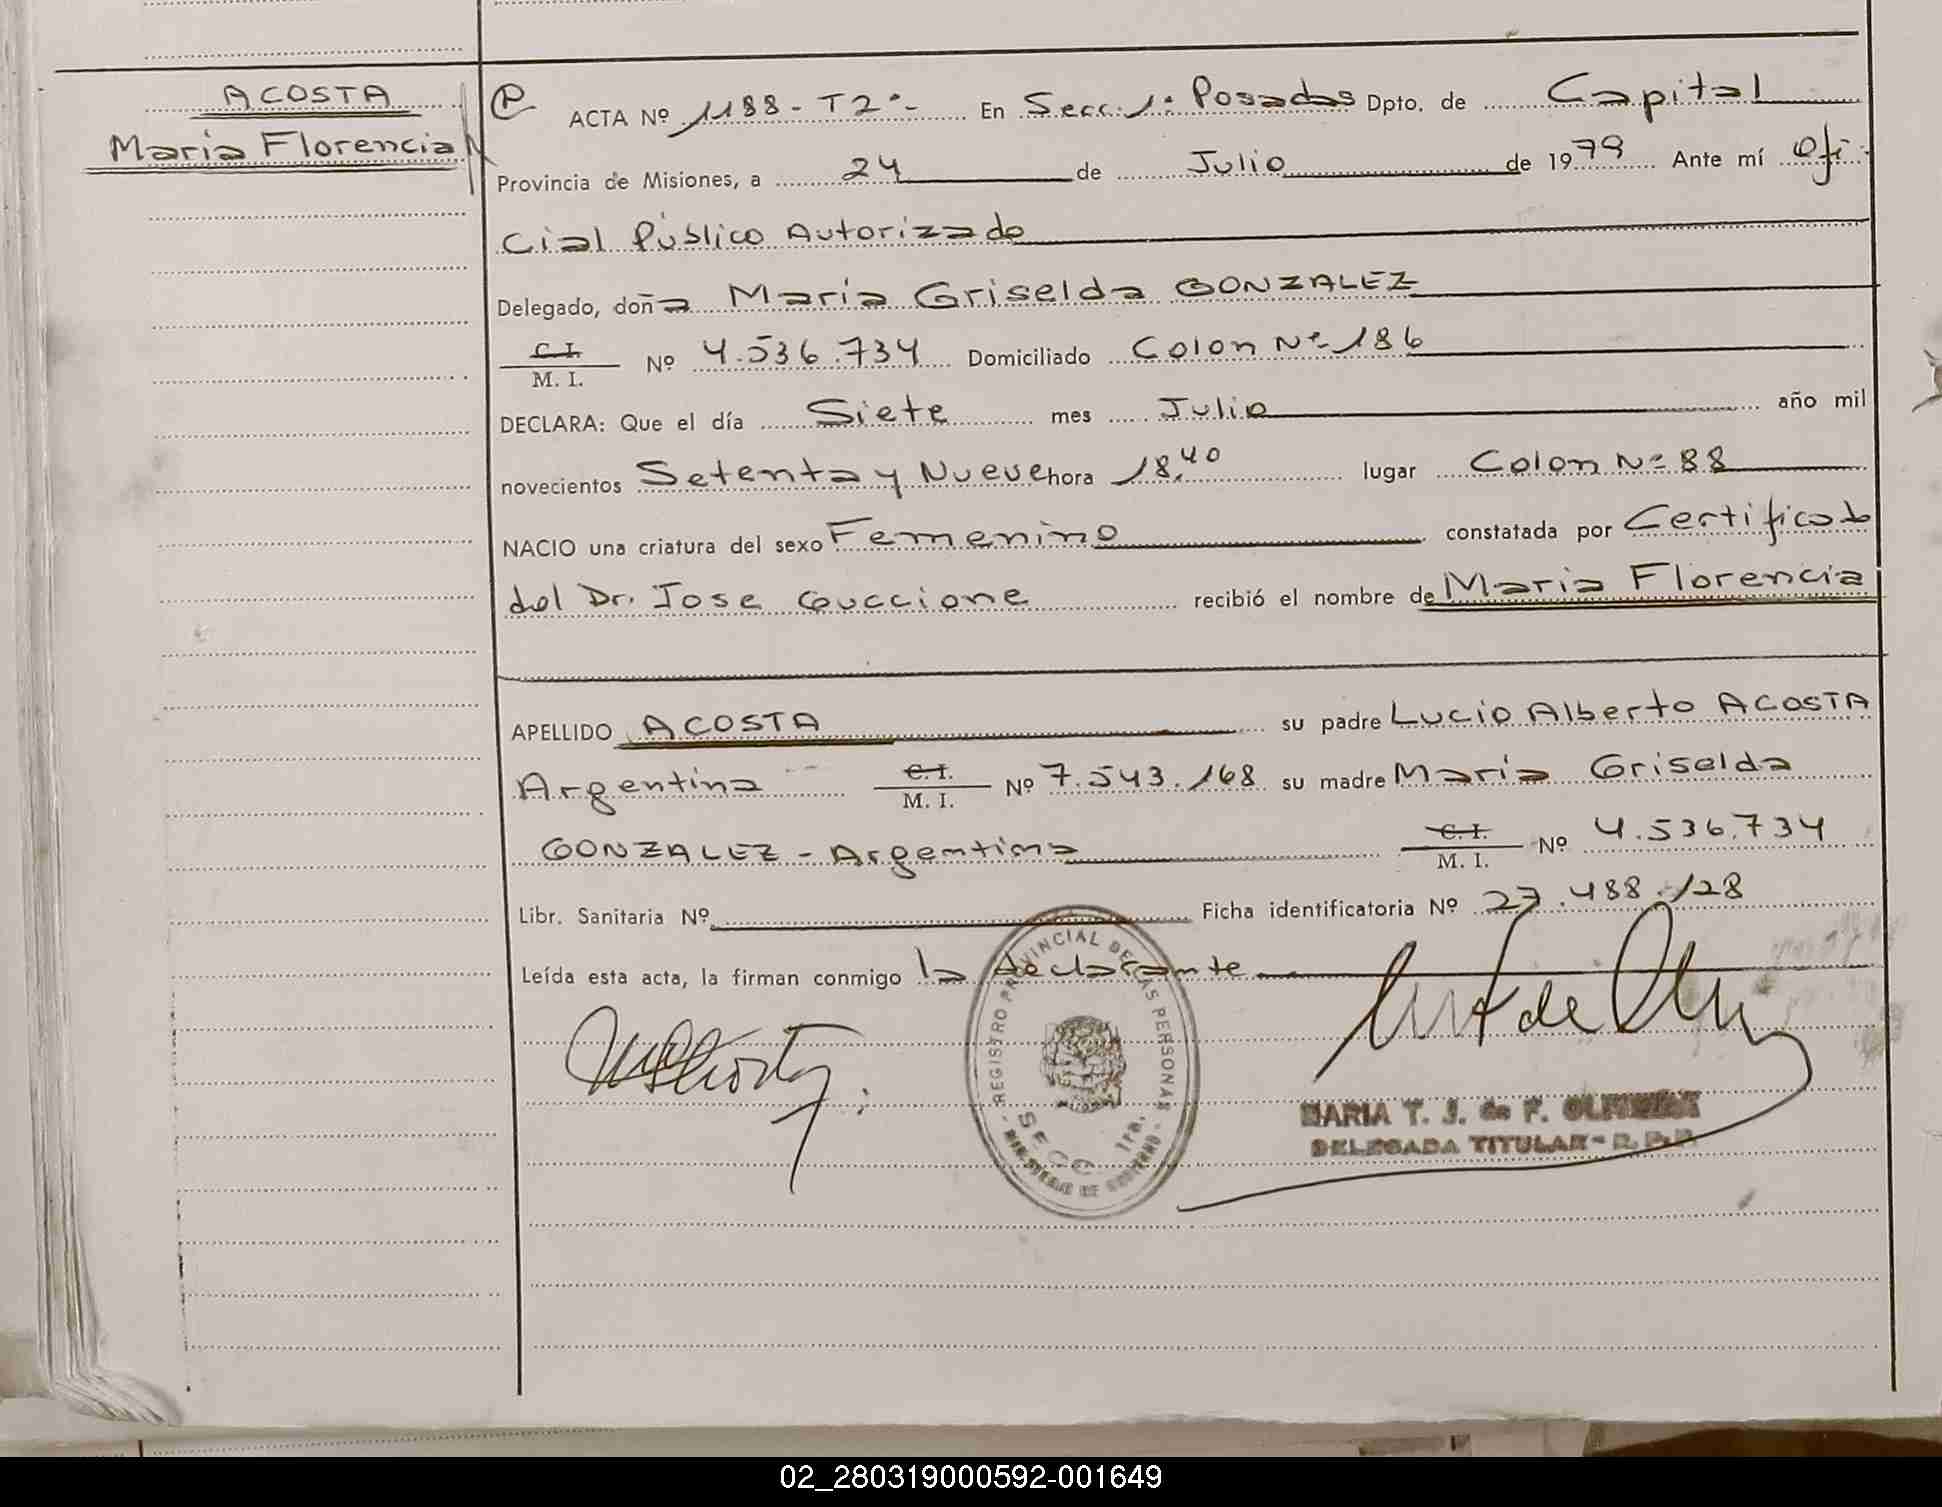 ACOSTA
Maria Florencia
ACTA Nº 1188 - T2º- En Secc. 1: Posadas Dpto. de Capital
Provincia de Misiones, a 24 de Julio de 1979 Ante mí Ofi
cial Público Autorizado
Delegado, doña María Griselda GONZALEZ
C. I.
M. I. Nº 4.536.734 Domiciliado Colon Nº 186
DECLARA: Que el día Siete mes Julio año mil
novecientos Setenta y Nueve hora 18,40 lugar Colon Nº 88
NACIO una criatura del sexo Femenino constatada por Certificado
del Dr. Jose Guccione recibió el nombre de Maria Florencia
APELLIDO ACOSTA su padre Lucio Alberto ACOSTA
Argentina C. I.
M. I. Nº 7.543.168 su madre María Griselda
GONZALEZ - Argentina C. I.
M. I. Nº 4.536.734
Libr. Sanitaria Nº Ficha identificatoria Nº 27.488.128
Leída esta acta, la firman conmigo la declarante
REGISTRO PROVINCIAL DE LAS PERSONAS
SECC. 1ra.
MINISTERIO DE GOBIERNO
MARIA T. J. de F.
DELEGADA TITULAR - R. P. P.
02_280319000592-001649